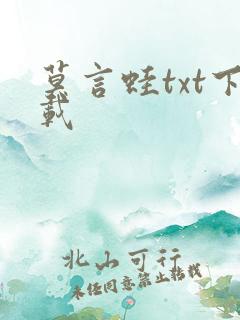 莫言蛙txt下
载
北山可行
未经同意禁止转载